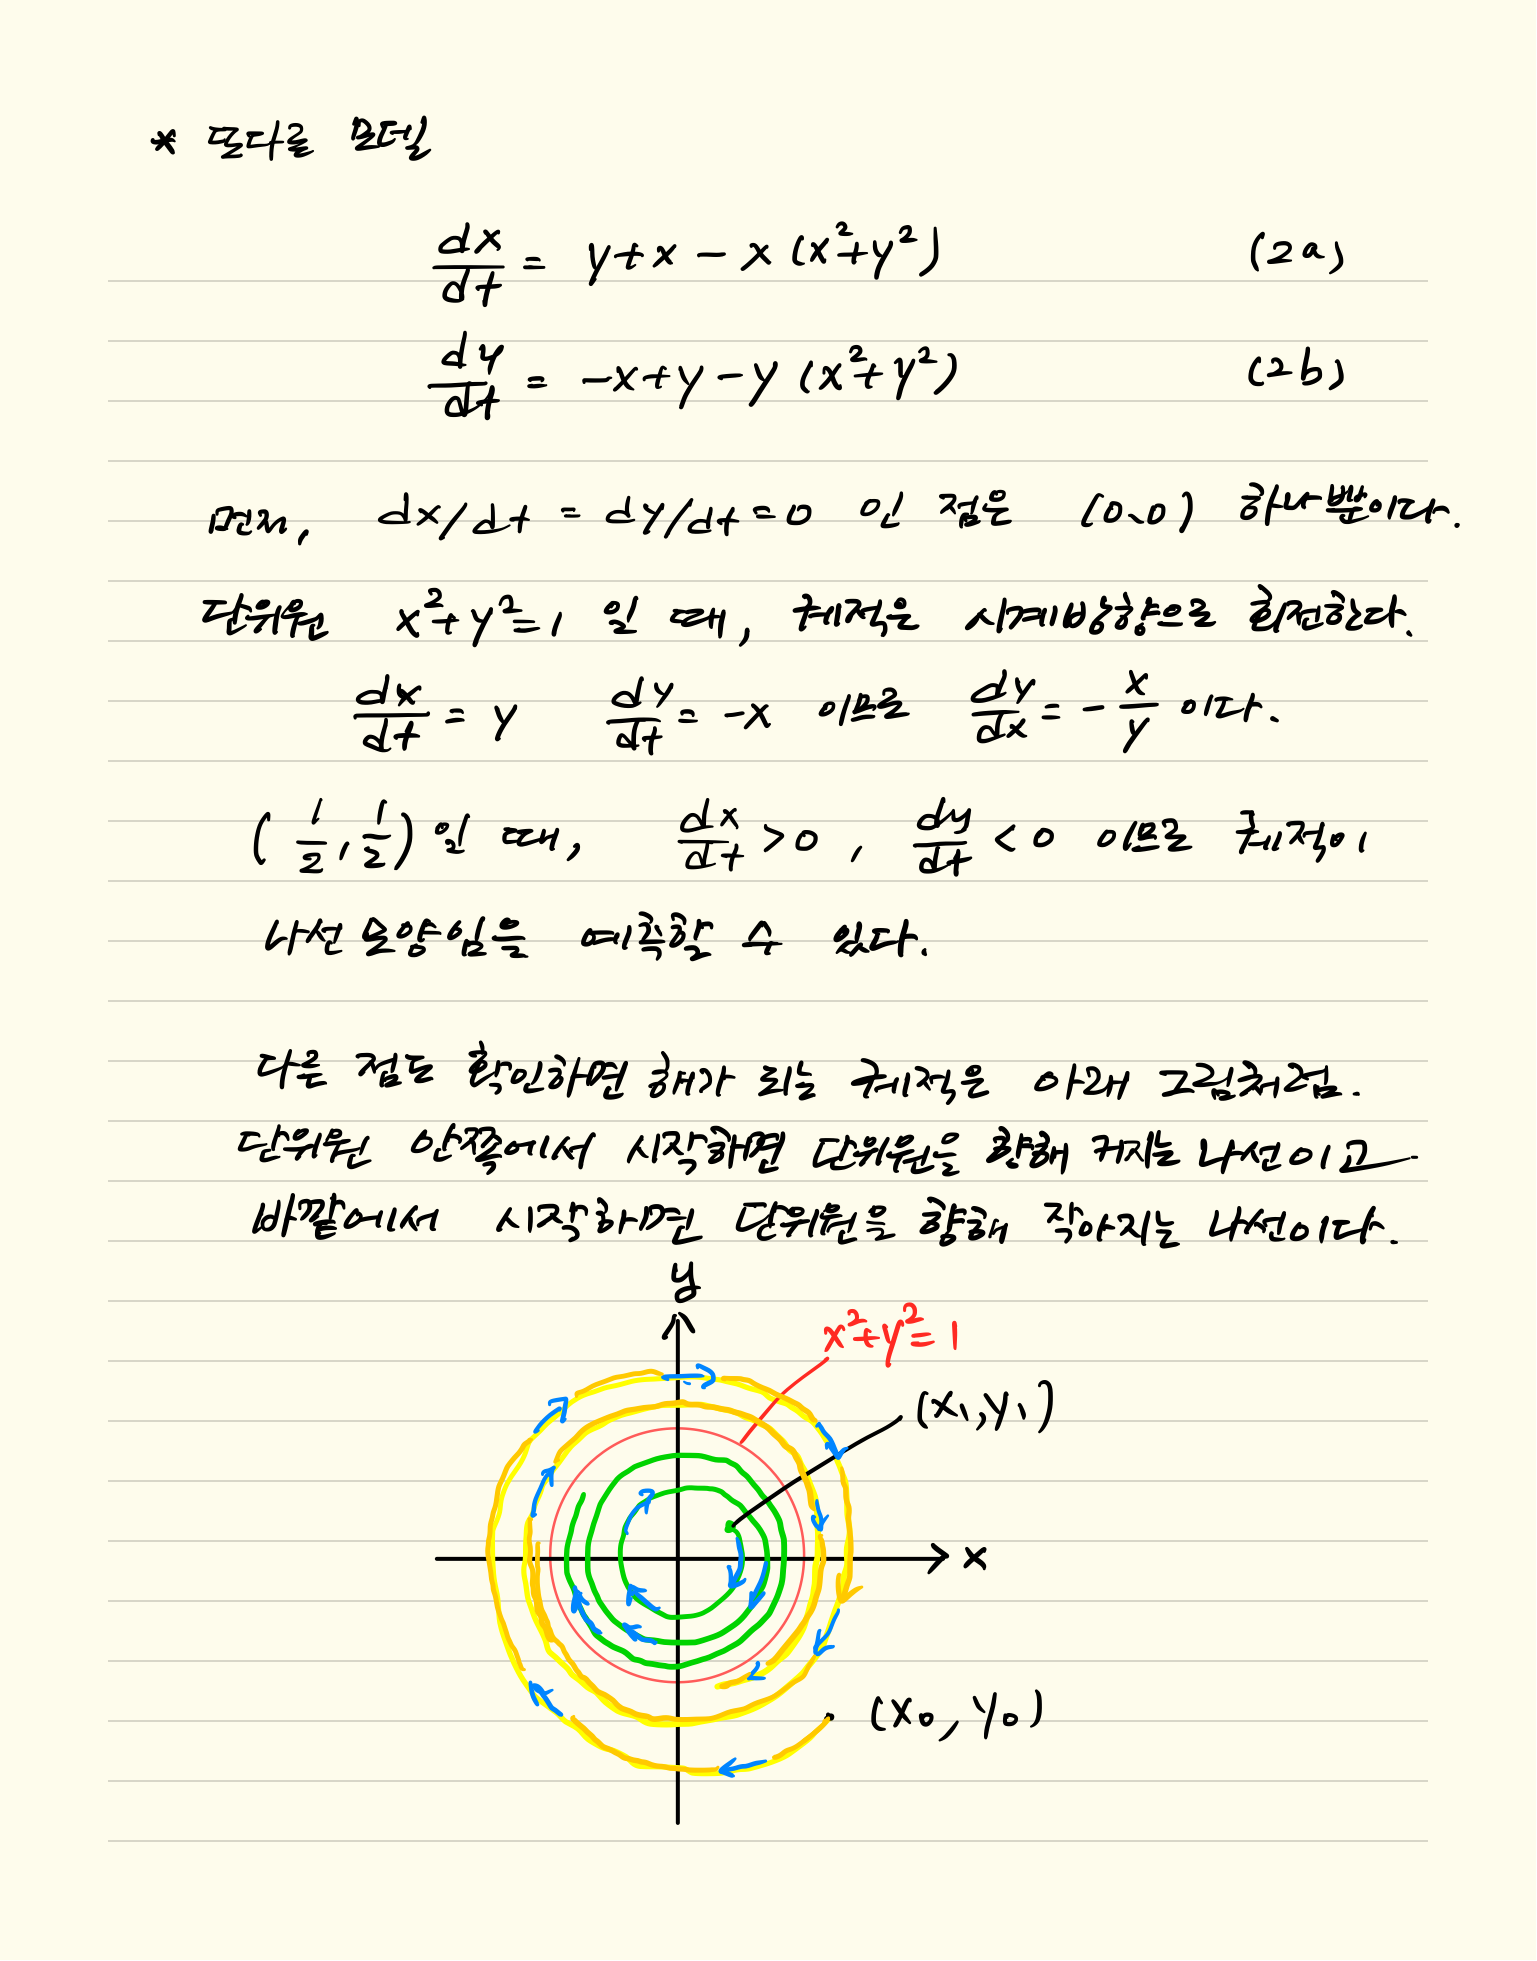 * 또다른 모델
dx/dt = y+x - x (x²+y²) (2a)
dy/dt = -x+y-y (x²+y²) (2b)
먼저, dx/dt = dy/dt = 0 인 점은 (0,0) 하나뿐이다.
단위원 x²+y²=1 일 때, 궤적은 시계방향으로 회전한다.
dx/dt = y dy/dt = -x 이므로 dy/dx = - x/y 이다.
(1/2, 1/2) 일 때, dx/dt > 0, dy/dt < 0 이므로 궤적이
나선 모양임을 예측할 수 있다.
다른 점도 확인하면 해가 되는 궤적은 아래 그림처럼.
단위원 안쪽에서 시작하면 단위원을 향해 커지는 나선이고
바깥에서 시작하면 단위원을 향해 작아지는 나선이다.
y
x²+y²=1
(x₁,y₁)
x
(x₀,y₀)